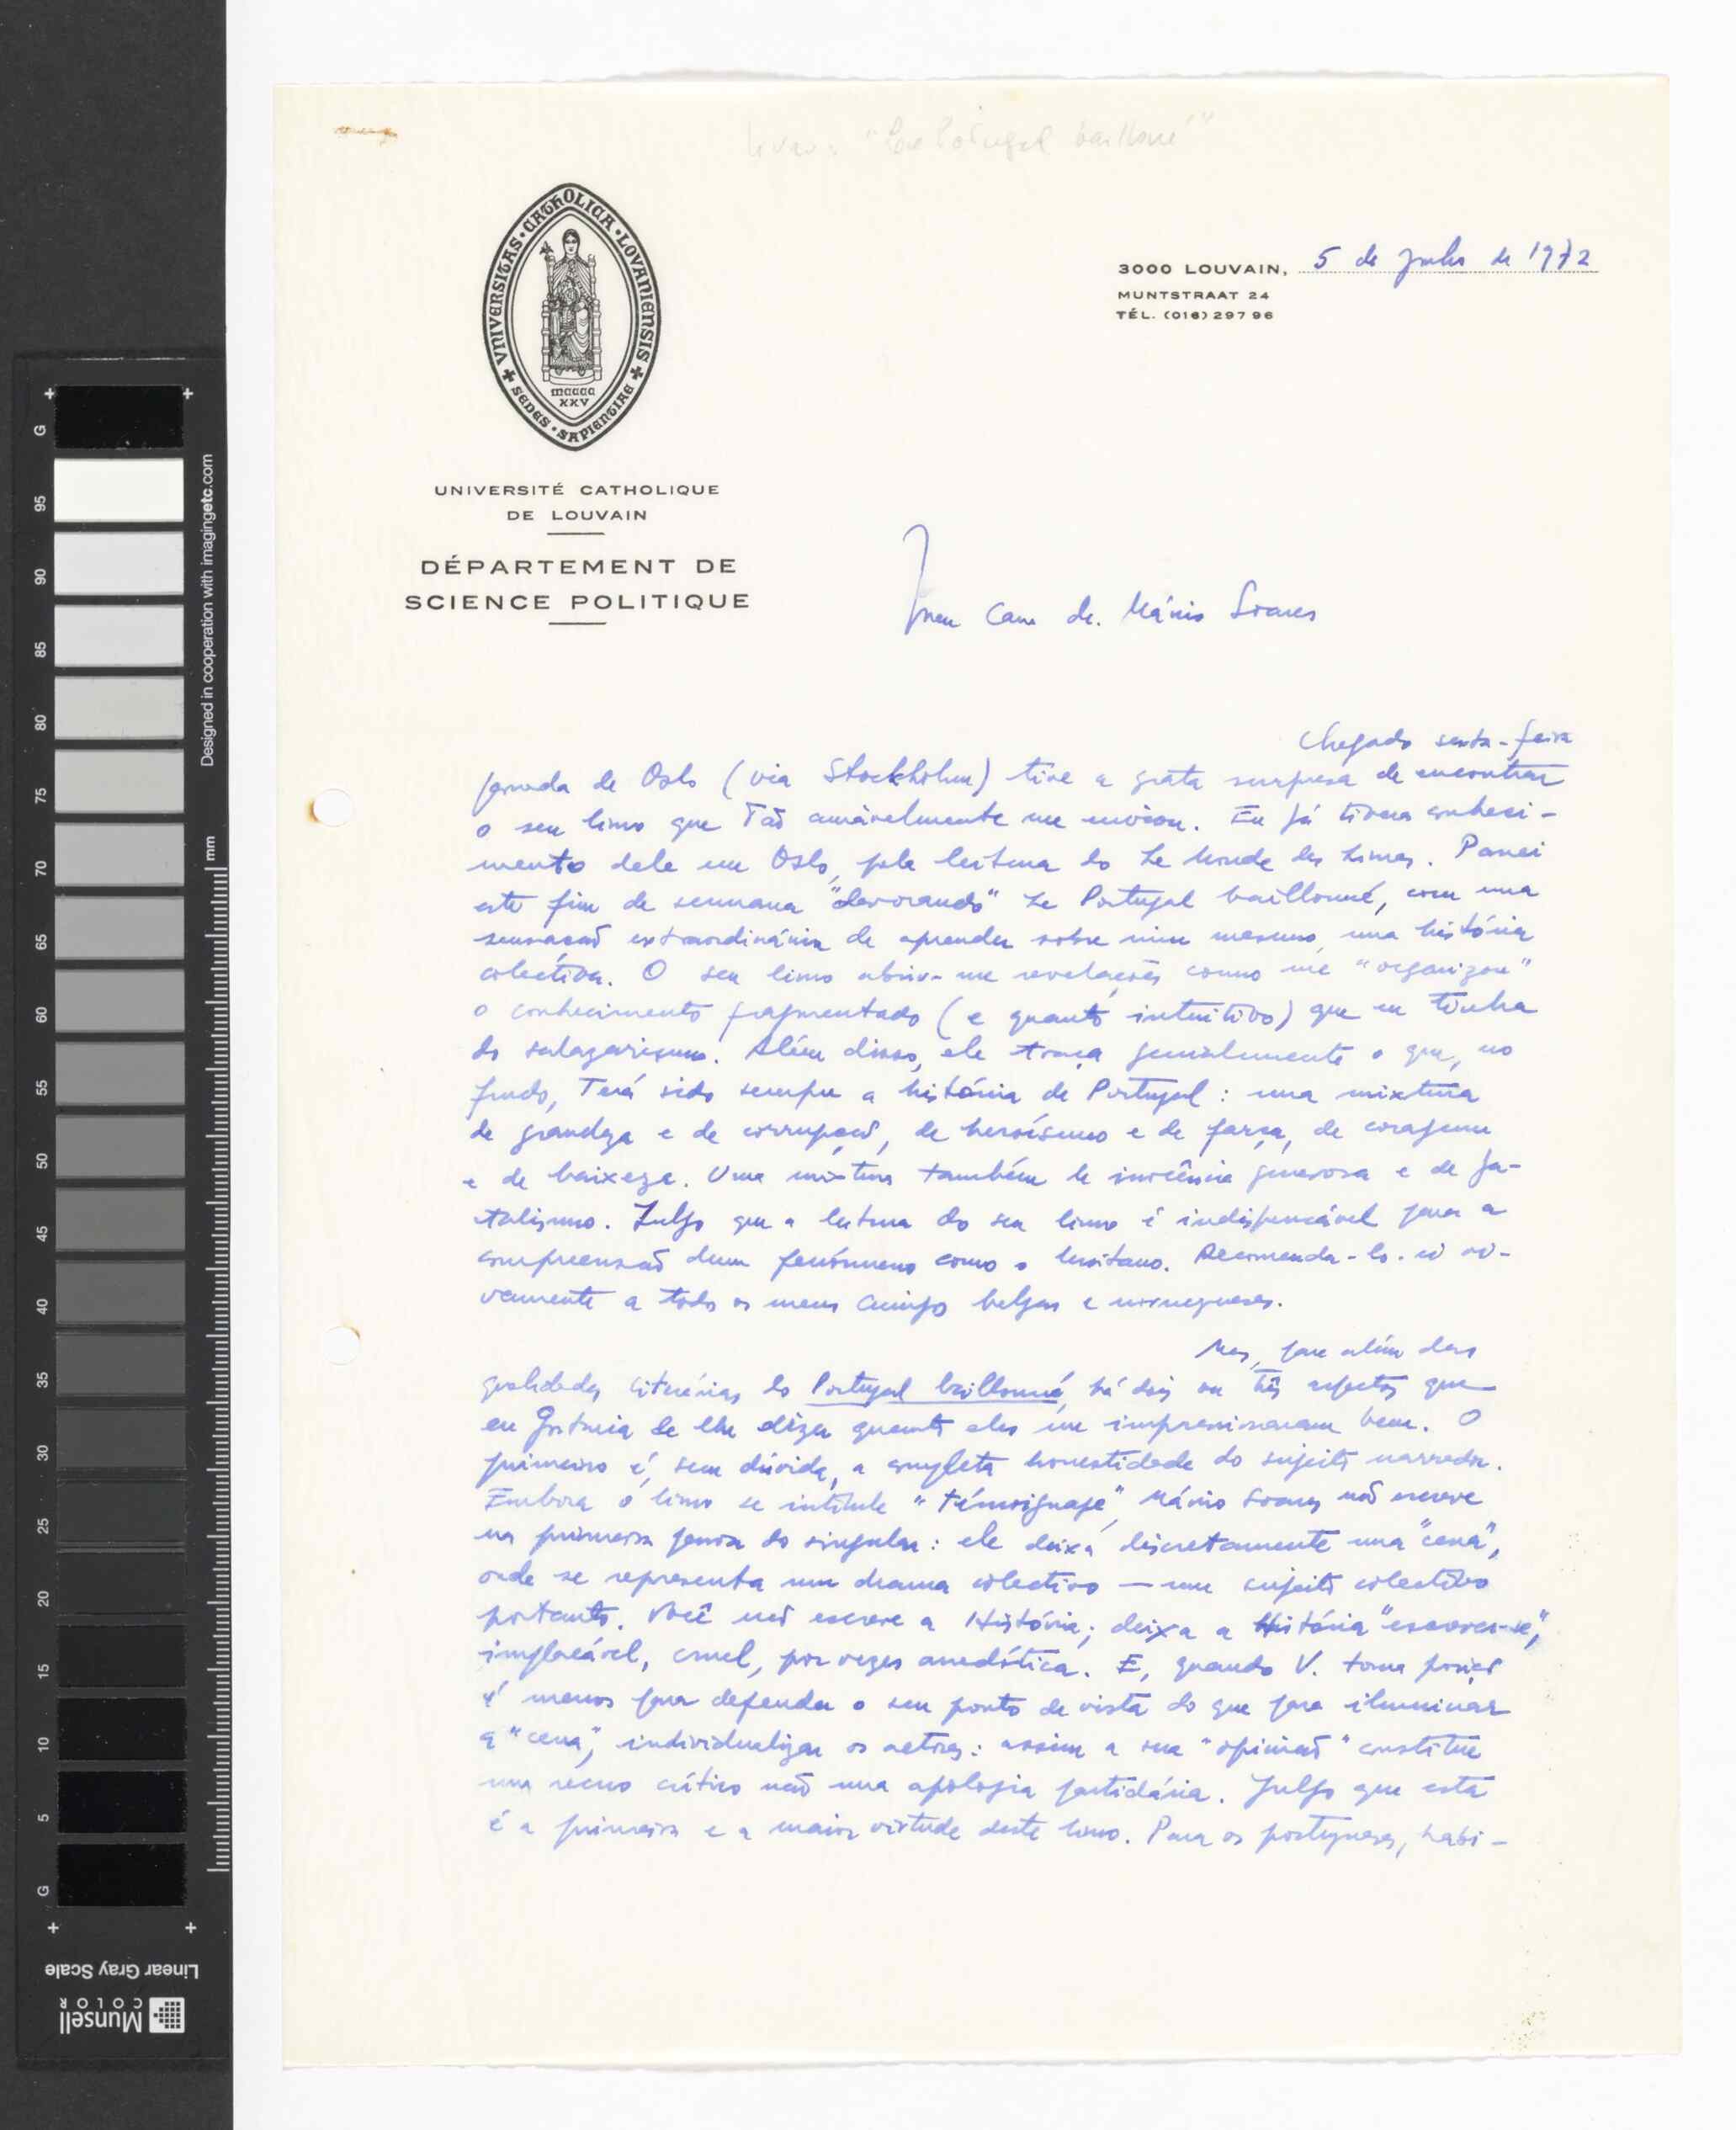 livro: "Le Portugal baillonné"
UNIVERSITAS · CATHOLICA · LOVANIENSIS
SEDES · SAPIENTIAE
MCCCC
XXV
UNIVERSITÉ CATHOLIQUE
DE LOUVAIN
DÉPARTEMENT DE
SCIENCE POLITIQUE
3000 LOUVAIN, 5 de Julho de 1972
MUNTSTRAAT 24
TÉL. (016) 297 96
Meu caro dr. Mário Soares
Chegado sexta-feira
passada de Oslo (via Stockholm) tive a grata surpresa de encontrar
o seu livro que tão amàvelmente me enviou. Eu já tivera conheci-
mento dele em Oslo, pela leitura do Le Monde des Livres. Passei
este fim de semana "devorando" Le Portugal baillonné, com uma
sensação extraordinária de aprender sobre mim mesmo, uma história
colectiva. O seu livro abriu-me revelações como me "organizou"
o conhecimento fragmentado (e quanto intuitivo) que eu tinha
do salazarismo. Além disso, ele traça genialmente o que, no
fundo, terá sido sempre a história de Portugal: uma mixtura
de grandeza e de corrupção, de heroísmo e de farsa, de coragem
e de baixeza. Uma mixtura também de inocência generosa e de fa-
talismo. Julgo que a leitura do seu livro é indispensável para a
compreensão dum fenómeno como o lusitano. Recomenda-lo-ei vi-
vamente a todos os meus amigos belgas e noruegueses.
Mas, para além das
qualidades literárias do Portugal baillonné, há dois ou três aspectos que
eu gostaria de lhe dizer quanto eles me impressionaram bem. O
primeiro é, sem dúvida, a completa honestidade do sujeito narrador.
Embora o livro se intitule "témoignage", Mário Soares não escreve
na primeira pessoa do singular: ele deixa discretamente uma "cena",
onde se representa um drama colectivo — um sujeito colectivo
portanto. Você não escreve a História; deixa a História "escrever-se",
implacável, cruel, por vezes anedótica. E, quando V. toma posição
é menos para defender o seu ponto de vista do que para iluminar
a "cena", individualizar os actores: assim a sua "opinião" constitue
um crítico não uma apologia partidária. Julgo que esta
é a primeira e a maior virtude deste livro. Para os portugueses, habi-
Designed in cooperation with imagingetc.com
mm
G
95
90
85
80
75
70
65
60
55
50
45
40
35
30
25
20
15
10
5
G
Linear Gray Scale
Munsell
COLOR